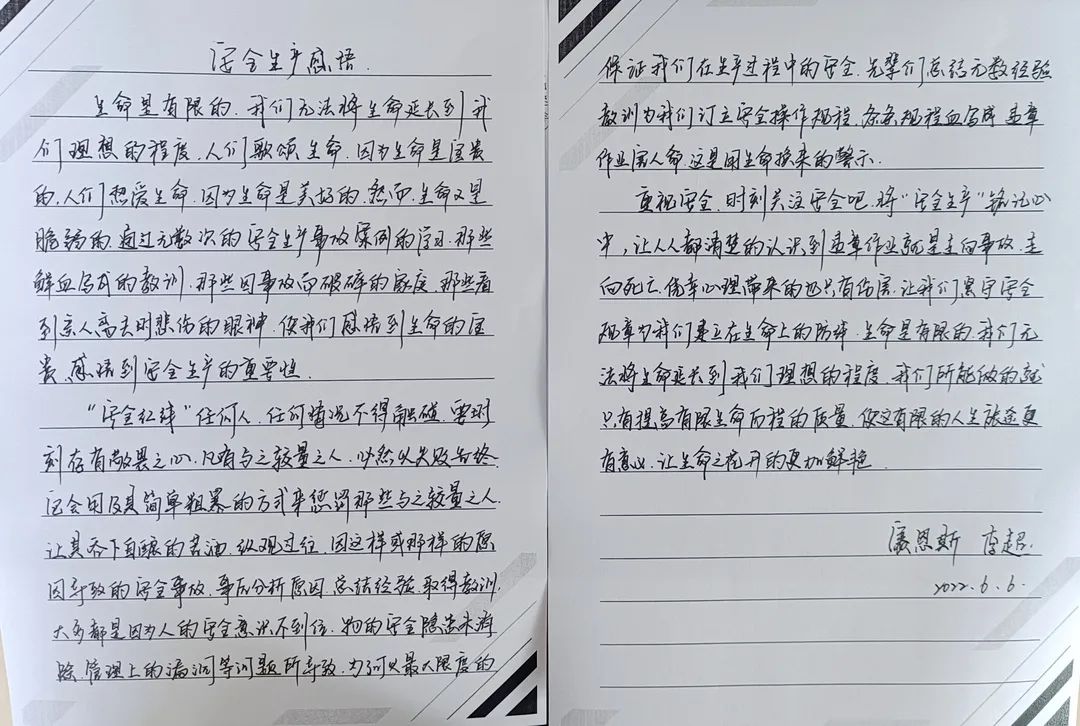 安全生产感悟.
生命是有限的.我们无法将生命延长到我
们理想的程度.人们歌颂生命.因为生命是宝贵
的.人们热爱生命.因为生命是美好的.然而.生命又是
脆弱的.通过无数次的安全生产事故案例的学习.那些
鲜血写成的教训.那些因事故而破碎的家庭.那些看
到亲人离去时悲伤的眼神.使我们感悟到生命的宝
贵.感悟到安全生产的重要性.
“安全红线”任何人.任何情况不得触碰.要时
刻存有敬畏之心.凡有与之较量之人.必然以失败告终.
它会用及其简单粗暴的方式来惩罚那些与之较量之人.
让其吞下自酿的苦酒.纵观过往.因这样或那样的原
因导致的安全事故.事后分析原因.总结经验.取得教训.
大多都是因为人的安全意识不到位.物的安全隐患未消
除.管理上的漏洞等问题所导致.为了最大限度的
保证我们在生产过程中的安全.先辈们总结无数经验
教训为我们订立安全操作规程.条条规程血写成.违章
作业害人命.这是用生命换来的警示.
重视安全.时刻关注安全吧.将“安全生产”铭记心
中,让人人都清楚的认识到违章作业就是走向事故.走
向死亡.侥幸心理带来的也只有伤害.让我们黑守安全
规章为我们建立在生命上的防线.生命是有限的.我们无
法将生命延长到我们理想的程度.我们所能做的就
只有提高有限生命历程的质量.使这有限的人生旅途更
有意义.让生命之花开的更加鲜艳.
康恩斯 李超.
2022.6.6.